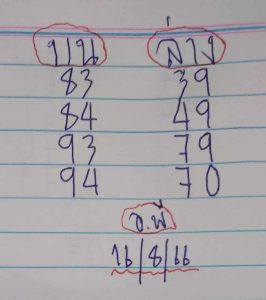 บน ล่าง
83 39
84 49
93 79
94 70
อ.พี
16/8/66